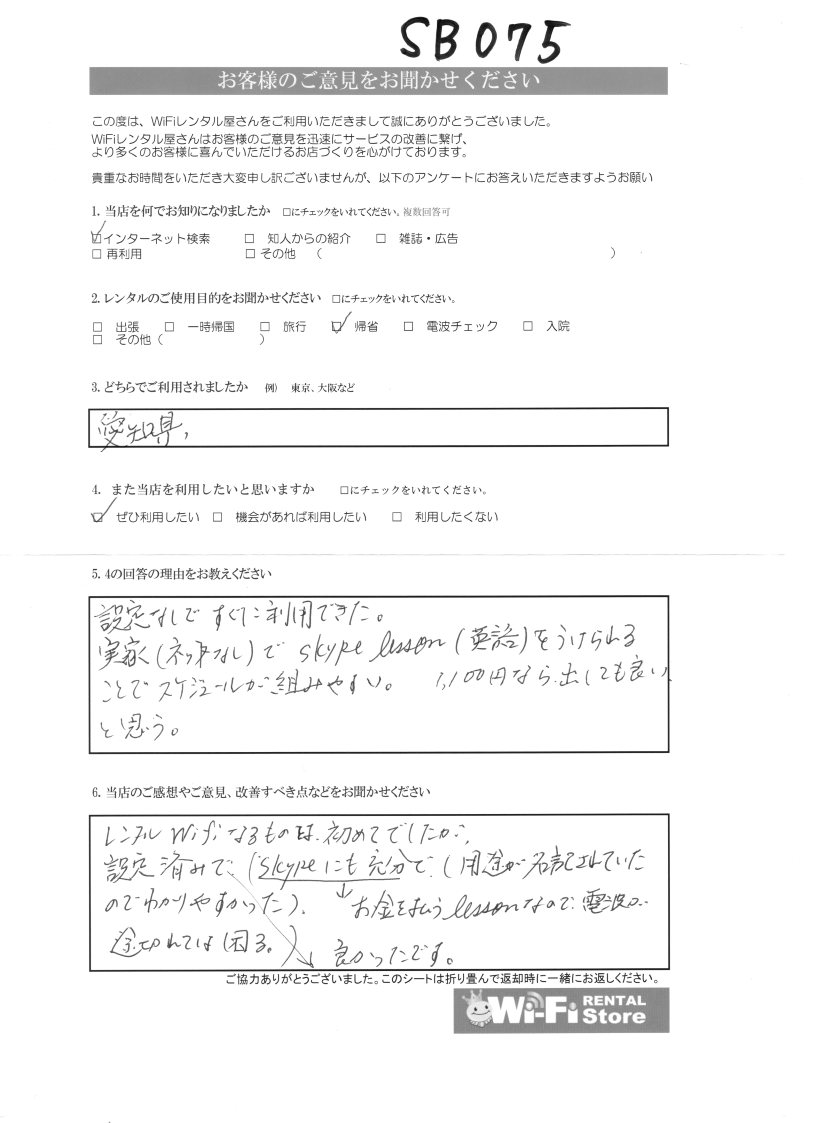 SB075
お客様のご意見をお聞かせください
この度は、WiFiレンタル屋さんをご利用いただきまして誠にありがとうございました。
WiFiレンタル屋さんはお客様のご意見を迅速にサービスの改善に繋げ、
より多くのお客様に喜んでいただけるお店づくりを心がけております。
貴重なお時間をいただき大変申し訳ございませんが、以下のアンケートにお答えいただきますようお願い
1. 当店を何でお知りになりましたか □にチェックをいれてください。複数回答可
☑インターネット検索 □ 知人からの紹介 □ 雑誌・広告
□ 再利用 □ その他 ( )
2. レンタルのご使用目的をお聞かせください □にチェックをいれてください。
□ 出張 □ 一時帰国 □ 旅行 ☑ 帰省 □ 電波チェック □ 入院
□ その他 ( )
3. どちらでご利用されましたか 例) 東京、大阪など
愛知県,
4. また当店を利用したいと思いますか □にチェックをいれてください。
☑ ぜひ利用したい □ 機会があれば利用したい □ 利用したくない
5. 4の回答の理由をお教えください
設定なしですぐに利用できた。
実家(ネットなし)でskype lesson(英語)をうけられる
ことでスケジュールが組みやすい。 1,100円なら、出しても良い、
と思う。
6. 当店のご感想やご意見、改善すべき点などをお聞かせください
レンタル Wifiなるものは、初めてでしたが、
設定済みで、(skypeにも充分で、(用途が名記されていた
のでわかりやすかった)、 ↓お金を払うlessonなので、電波が
途切れては困る。)↓ 良かったです。
ご協力ありがとうございました。このシートは折り畳んで返却時に一緒にお返しください。
Wi-Fi RENTAL
Store